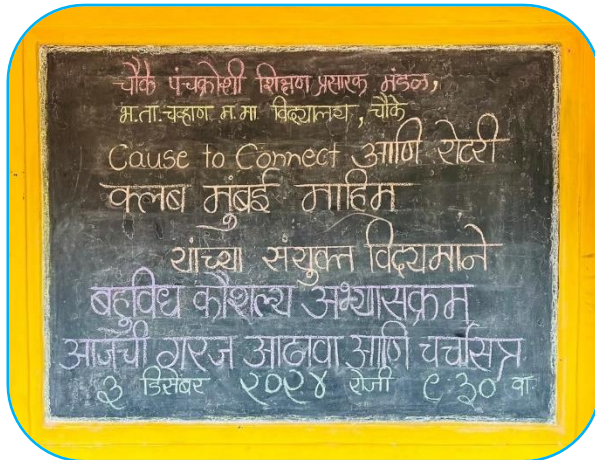 चौके पंचक्रोशी शिक्षण प्रसारक मंडळ,
भ.ता.चव्हाण म.मा विद्यालय, चौके
Cause to Connect आणि रोटरी
क्लब मुंबई माहिम
यांच्या संयुक्त विद्यमाने
बहुविध कौशल्य अभ्यासक्रम
आजची गरज आढावा आणि चर्चासत्र
३ डिसेंबर २०२४ रोजी ९.३० वा.